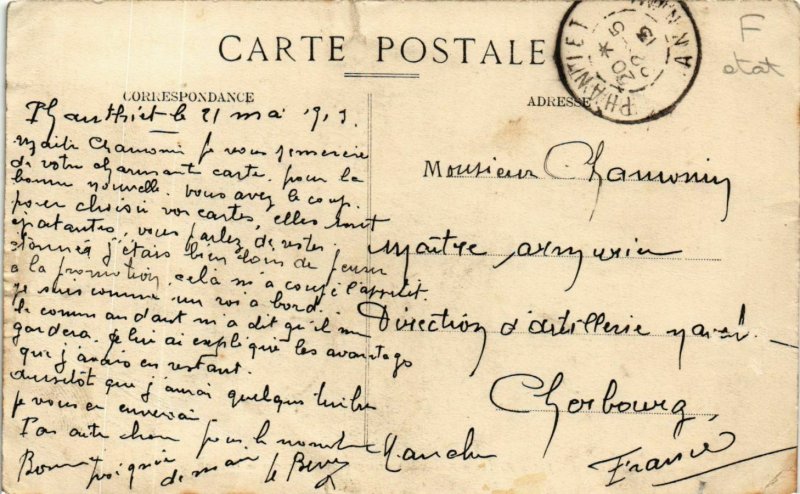 CARTE POSTALE
CORRESPONDANCE
ADRESSE
PHANTIET
ANNAM
20 * 5
13
F
etat
Phanthiet le 21 mai 1913.
Maitre Chamonin je vous remercie
de votre charmante carte. pour la
bonne nouvelle. vous avez le coup.
pour choisir vos cartes, elles sont
épatantes, vous parlez de rester
étonné j'étais bien loin de penser
a la promotion, celà m'a coupé l'appétit.
je suis comme un roi a bord.
le commandant m'a dit qu'il me
gardera. je lui ai expliqué les avantage
que j'avais en restant.
aussitôt que j'aurai quelques timbres
je vous en enverrai
Pas autre chose pour le moment
Bonne poignée
de main le
Monsieur Chamonin
Maître armurier
Direction d'artillerie navale
Cherbourg
Manche
France